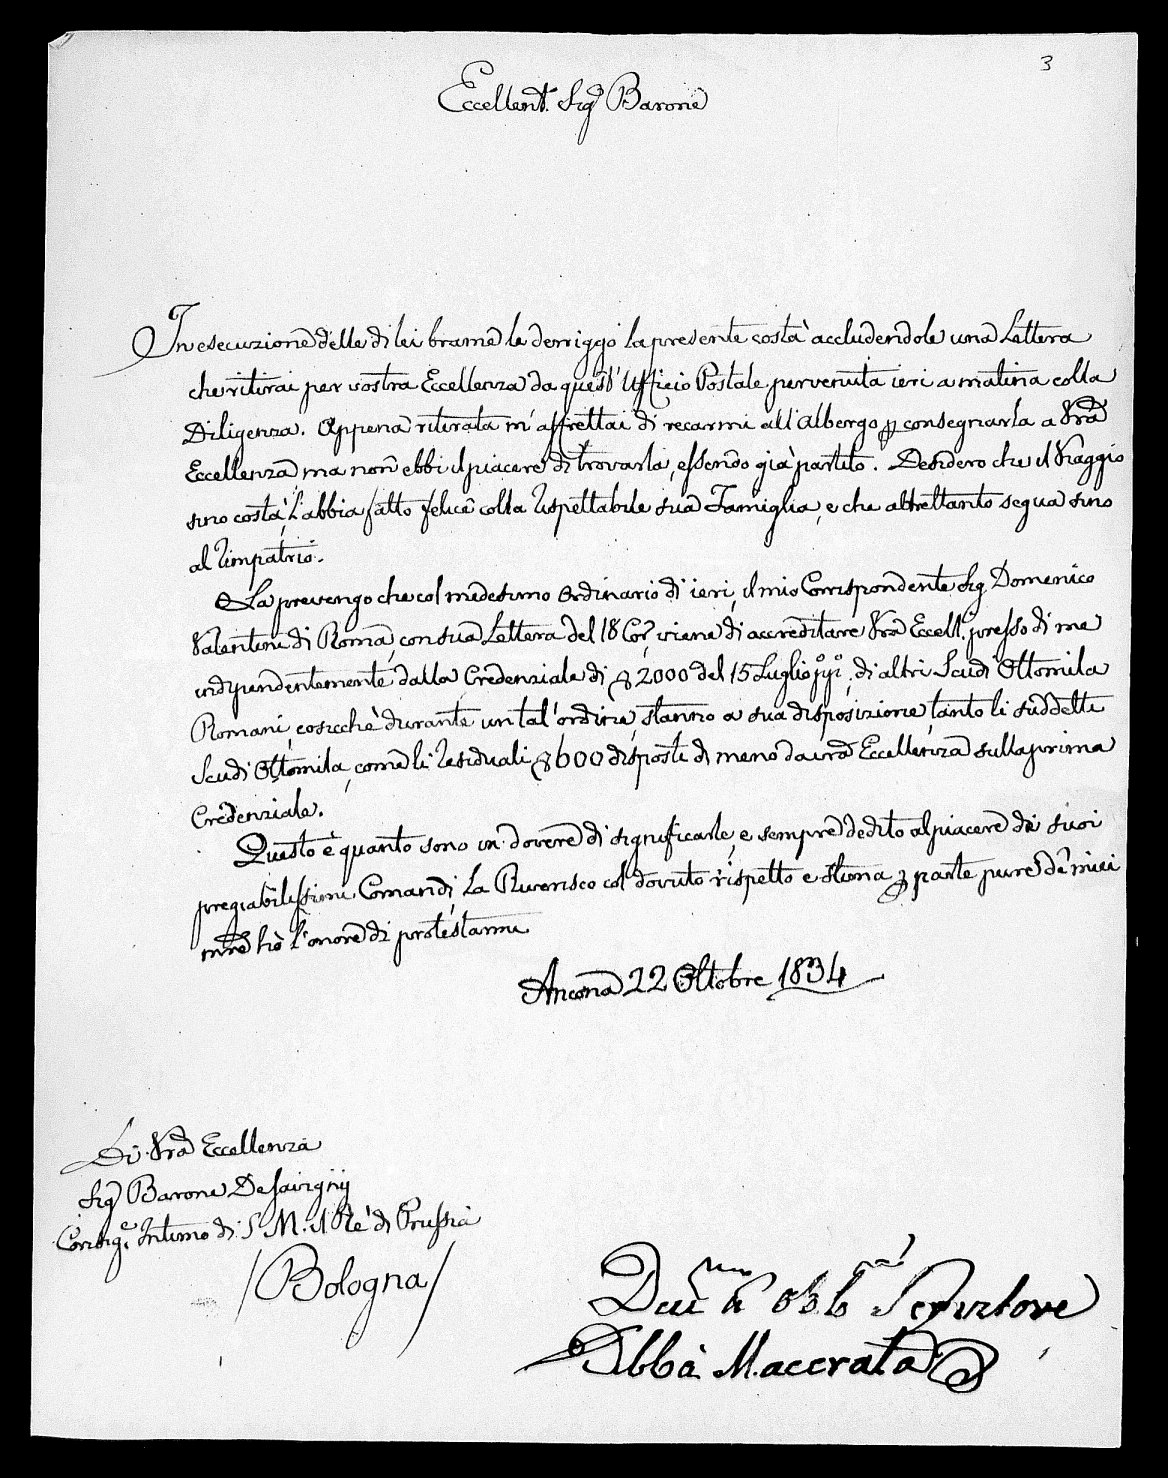 3
Eccellent. Sig.r Barone
In esecuzione delle di lei brame le derriggo la presente costà accludendole una Lettera
che ritirai per vostra Eccellenza da quest' Ufficio Postale pervenuta ieri a matina colla
Diligenza. Appena ritirata m' affrettai di recarmi all' Albergo p consegnarla a Vra
Eccellenza ma non ebbi il piacere di trovarla, essendo già partito. Desidero che il Viaggio
sino costà, l'abbia fatto felice colla rispettabile sua Famiglia, e che altrettanto segua sino
al rimpatrio.
La prevengo che col medesimo Ordinario di ieri, il mio Corrispondente Sig. Domenico
Valentini di Roma, con sua Lettera del 18 Cor.e viene di accreditare Vra Eccell.a presso di me
indipendentemente dalla Credenziale di 2000 del 15 Luglio pp.o, di altri Scudi Ottomila
Romani, cosicchè durante un tal' ordine, stanno a sua disposizione, tanto li suddetti
Scudi Ottomila, come li residuali 600 disposti di meno da vra Eccellenza sulla prima
Credenziale.
Questo è quanto sono in dovere di significarle, e sempre dedito al piacere dei suoi
pregiabilissimi Comandi, La Riverisco col dovuto rispetto e stima, parte pure de' miei
mre hò l'onore di protestarmi
Ancona 22 Ottobre 1834
Di Vra Eccellenza
Sig.r Barone De Savigny
Consig.e Intimo di S. M. il Rè di Prussia
/ Bologna /
Dev.mo ed Obb.mo Servitore
Abbà Macerata